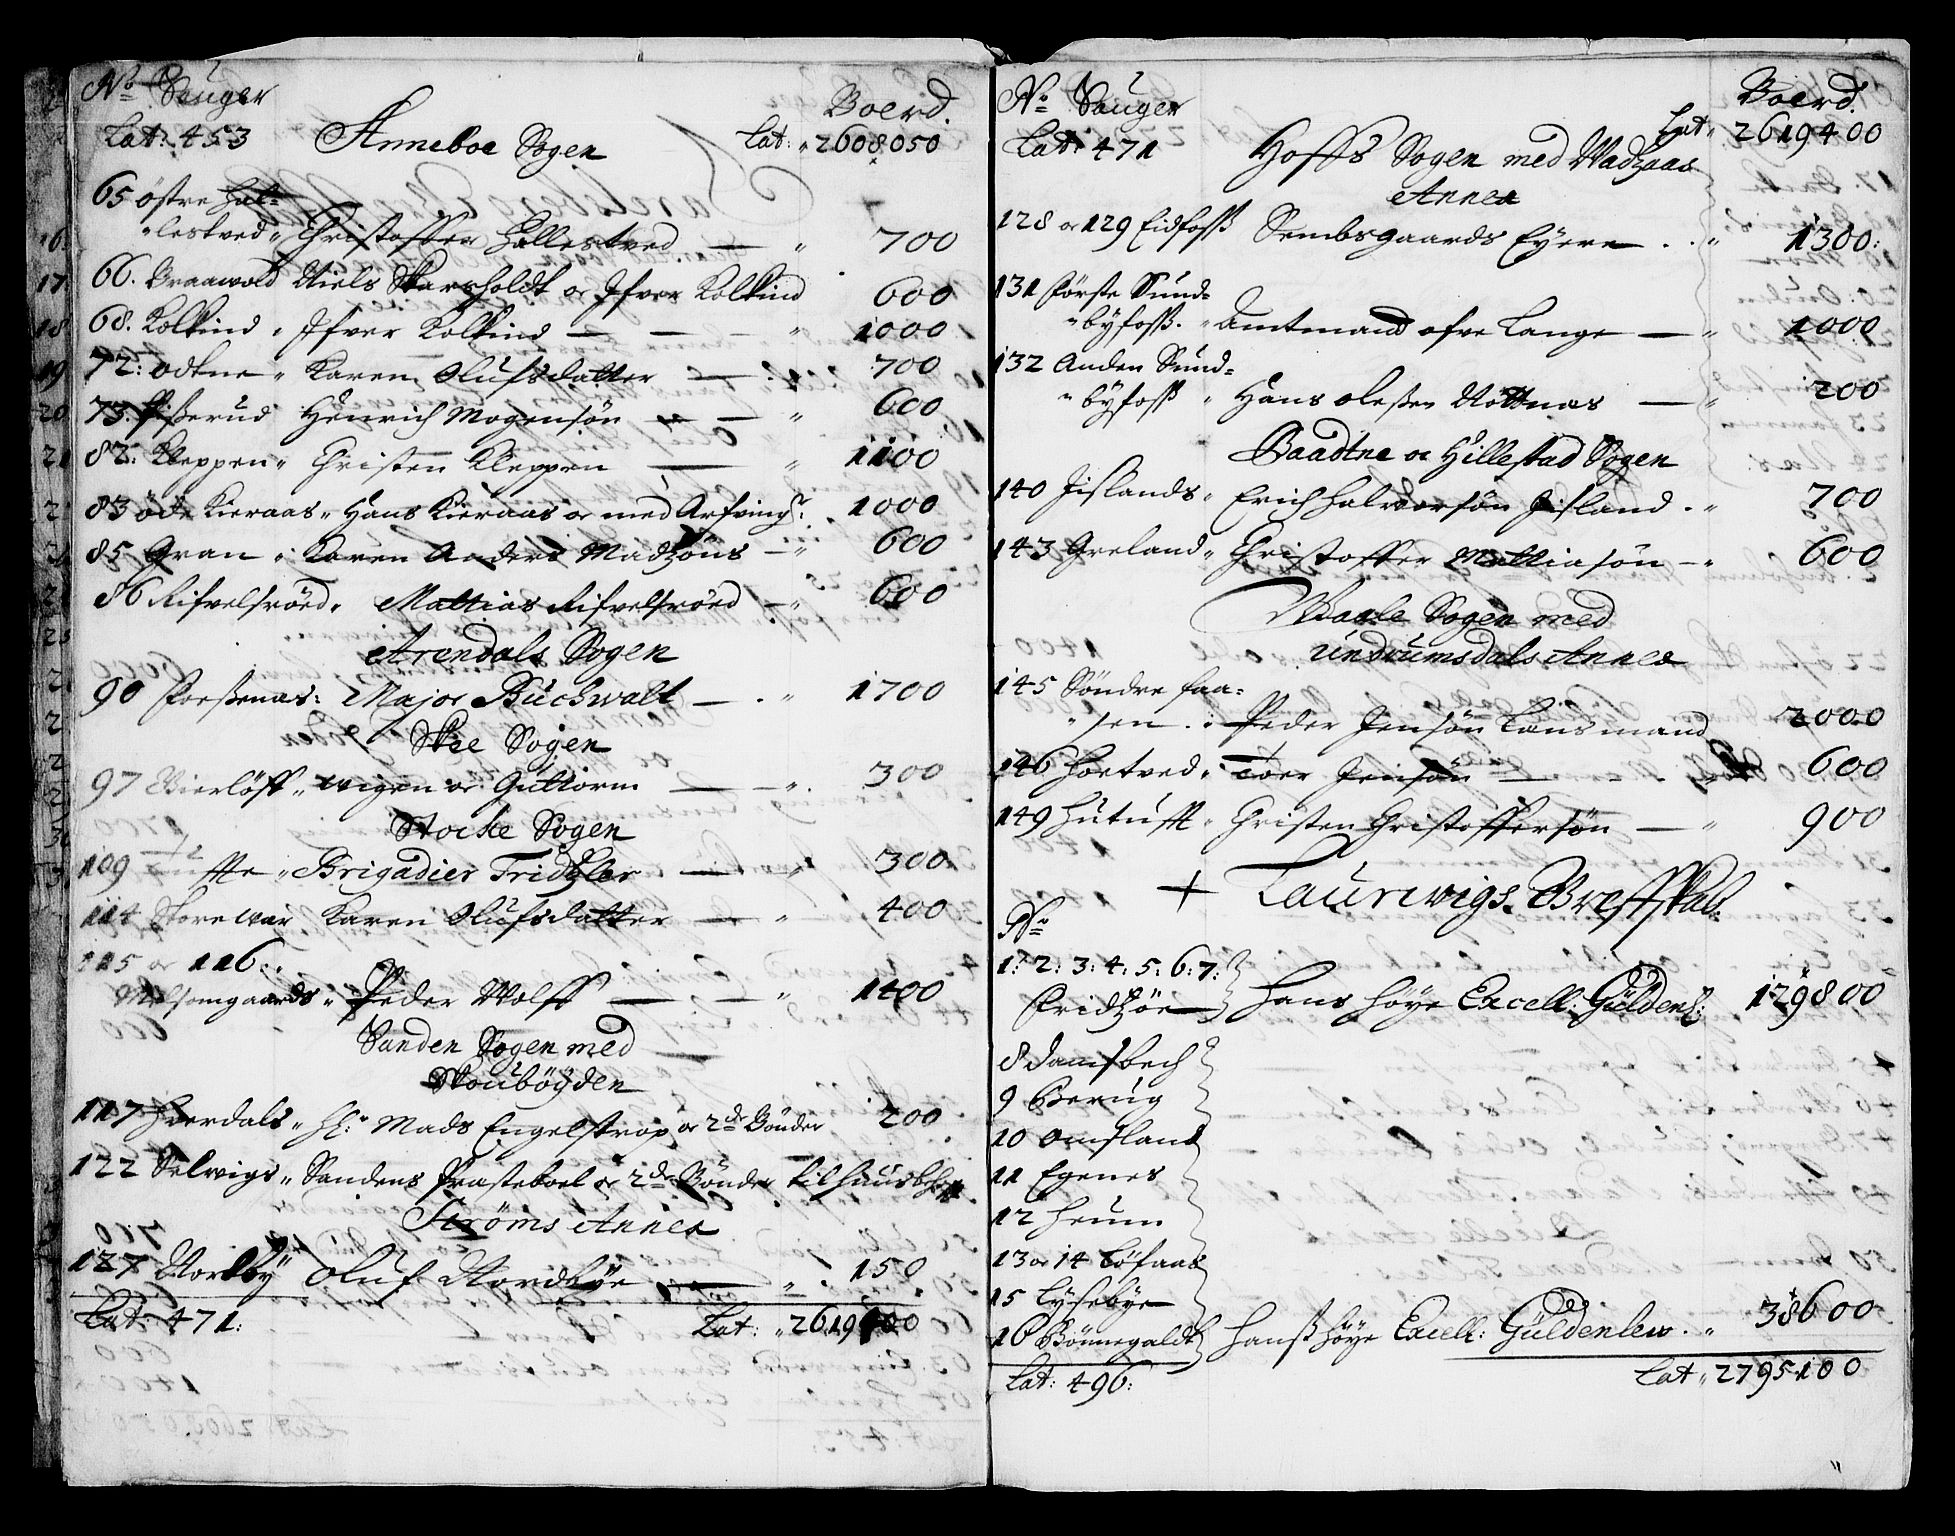 No Sauger
Boerd.
Lat: 453 Anneboe Sogen Lat: 2608050
65 östre Hal=
lestved Christoffer Hallestved 700
66. Braawold Niels Skarsholdt oc Ifver Kolkind 600
68. Kolkind Ifver Kolkind 1000
72: odkne Karen Olufsdatter 700
73. Henrich Mogensön 600
82: Kleppen Christen Kleppen 1100
83 öde Kieraas Hans Kieraas oc med Arfving: 1000
85 Gran Karen Anders Madzöns 600
86 Rifvelsröed Mattias Rifvelsröed 600
Arendals Sogen
90 Foeßenas: Major Buchwalt 1700
Skee Sogen
97 Bierlöff wigen oc Guttorm 300
Stocke Sogen
109 Brigadier Tridzler 300
114 Skorewar Karen Olufsdatter 400
115 oc 116:
Melsomgaards Peder Wolff 1400
Sanden Sogen med
Skoubÿyden
117 Hverdals Hl: Mads Engelstrop oc 2de Bönder 200
122 Selwigs Sandens Præsteboel oc 2de Bönder til huusbehof
Ströms Annex
127 Nordby Oluf Nordbye 150
Lat: 471: Lat: 2619400
No Sauger
Boerd.
Lat: 471 Lat 2619400
Hoffs Sogen med Wadzaas
Annex
128 oc 129 Eidfoss Sembsgaards Eyere 1300:
131 förste Sund=
byfoss. Amtmand ofve Lange 1000
132 Anden Sund=
byfoss Hans oleßen Nottnas 200
Baadtne oc Hillestad Sogen
140 Jislands Erich Halvorsön Jisland 700
143 Greland Christoffer Mattiasön 600
Waale Sogen med
Undrumsdals Annex
145 Söndre faa=
sen Peder Jensön Lansmand 2000
146 Hoetved Toer Jensön 600
149 Hutufft Christen Christoffersön 900
+ Laurwigs Grefskab:
No
1: 2: 3: 4: 5: 6: 7:
Fridzöe Hans Höye Excell: Gÿldenl: 129800
8 Damsbech
9 Berug
10 Omsland
11 Egenes
12 Heum
13 oc 14 Löfaas
15 Lysebye
16 Bönnegaldt Hanß höye Excell: Gÿldenlew 38600
Lat: 496: Lat 2795100